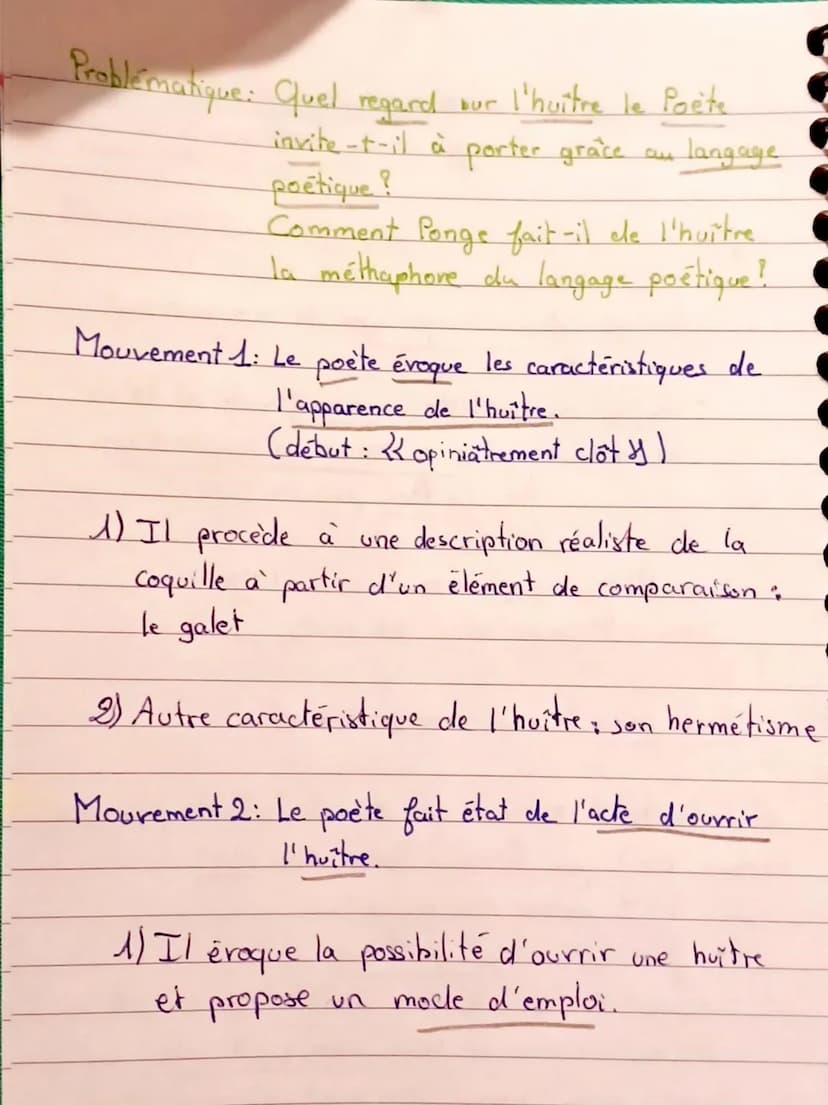 Problématique: Quel regard sur l'huître le Poète
invite-t-il à porter grâce au langage
poétique?
Comment Ponge fait-il de l'huître
la méthaphore du langage poétique?
Mouvement 1: Le poète évoque les caractéristiques de
l'apparence de l'huître.
(début: << opiniâtrement clôt >>)
1) Il procède à une description réaliste de la
coquille à partir d'un élément de comparaison:
le galet
2) Autre caractéristique de l'huître: son hermétisme
Mouvement 2: Le poète fait état de l'acte d'ouvrir
l'huître.
1) Il évoque la possibilité d'ouvrir une huître
et propose un mode d'emploi.